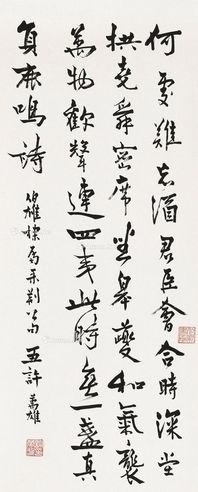 何處難忘酒君臣會合時深堂
拱堯舜密席坐皋夔和氣襲
萬物歡聲連四夷此時無一盞真
負鹿鳴詩
荆公句